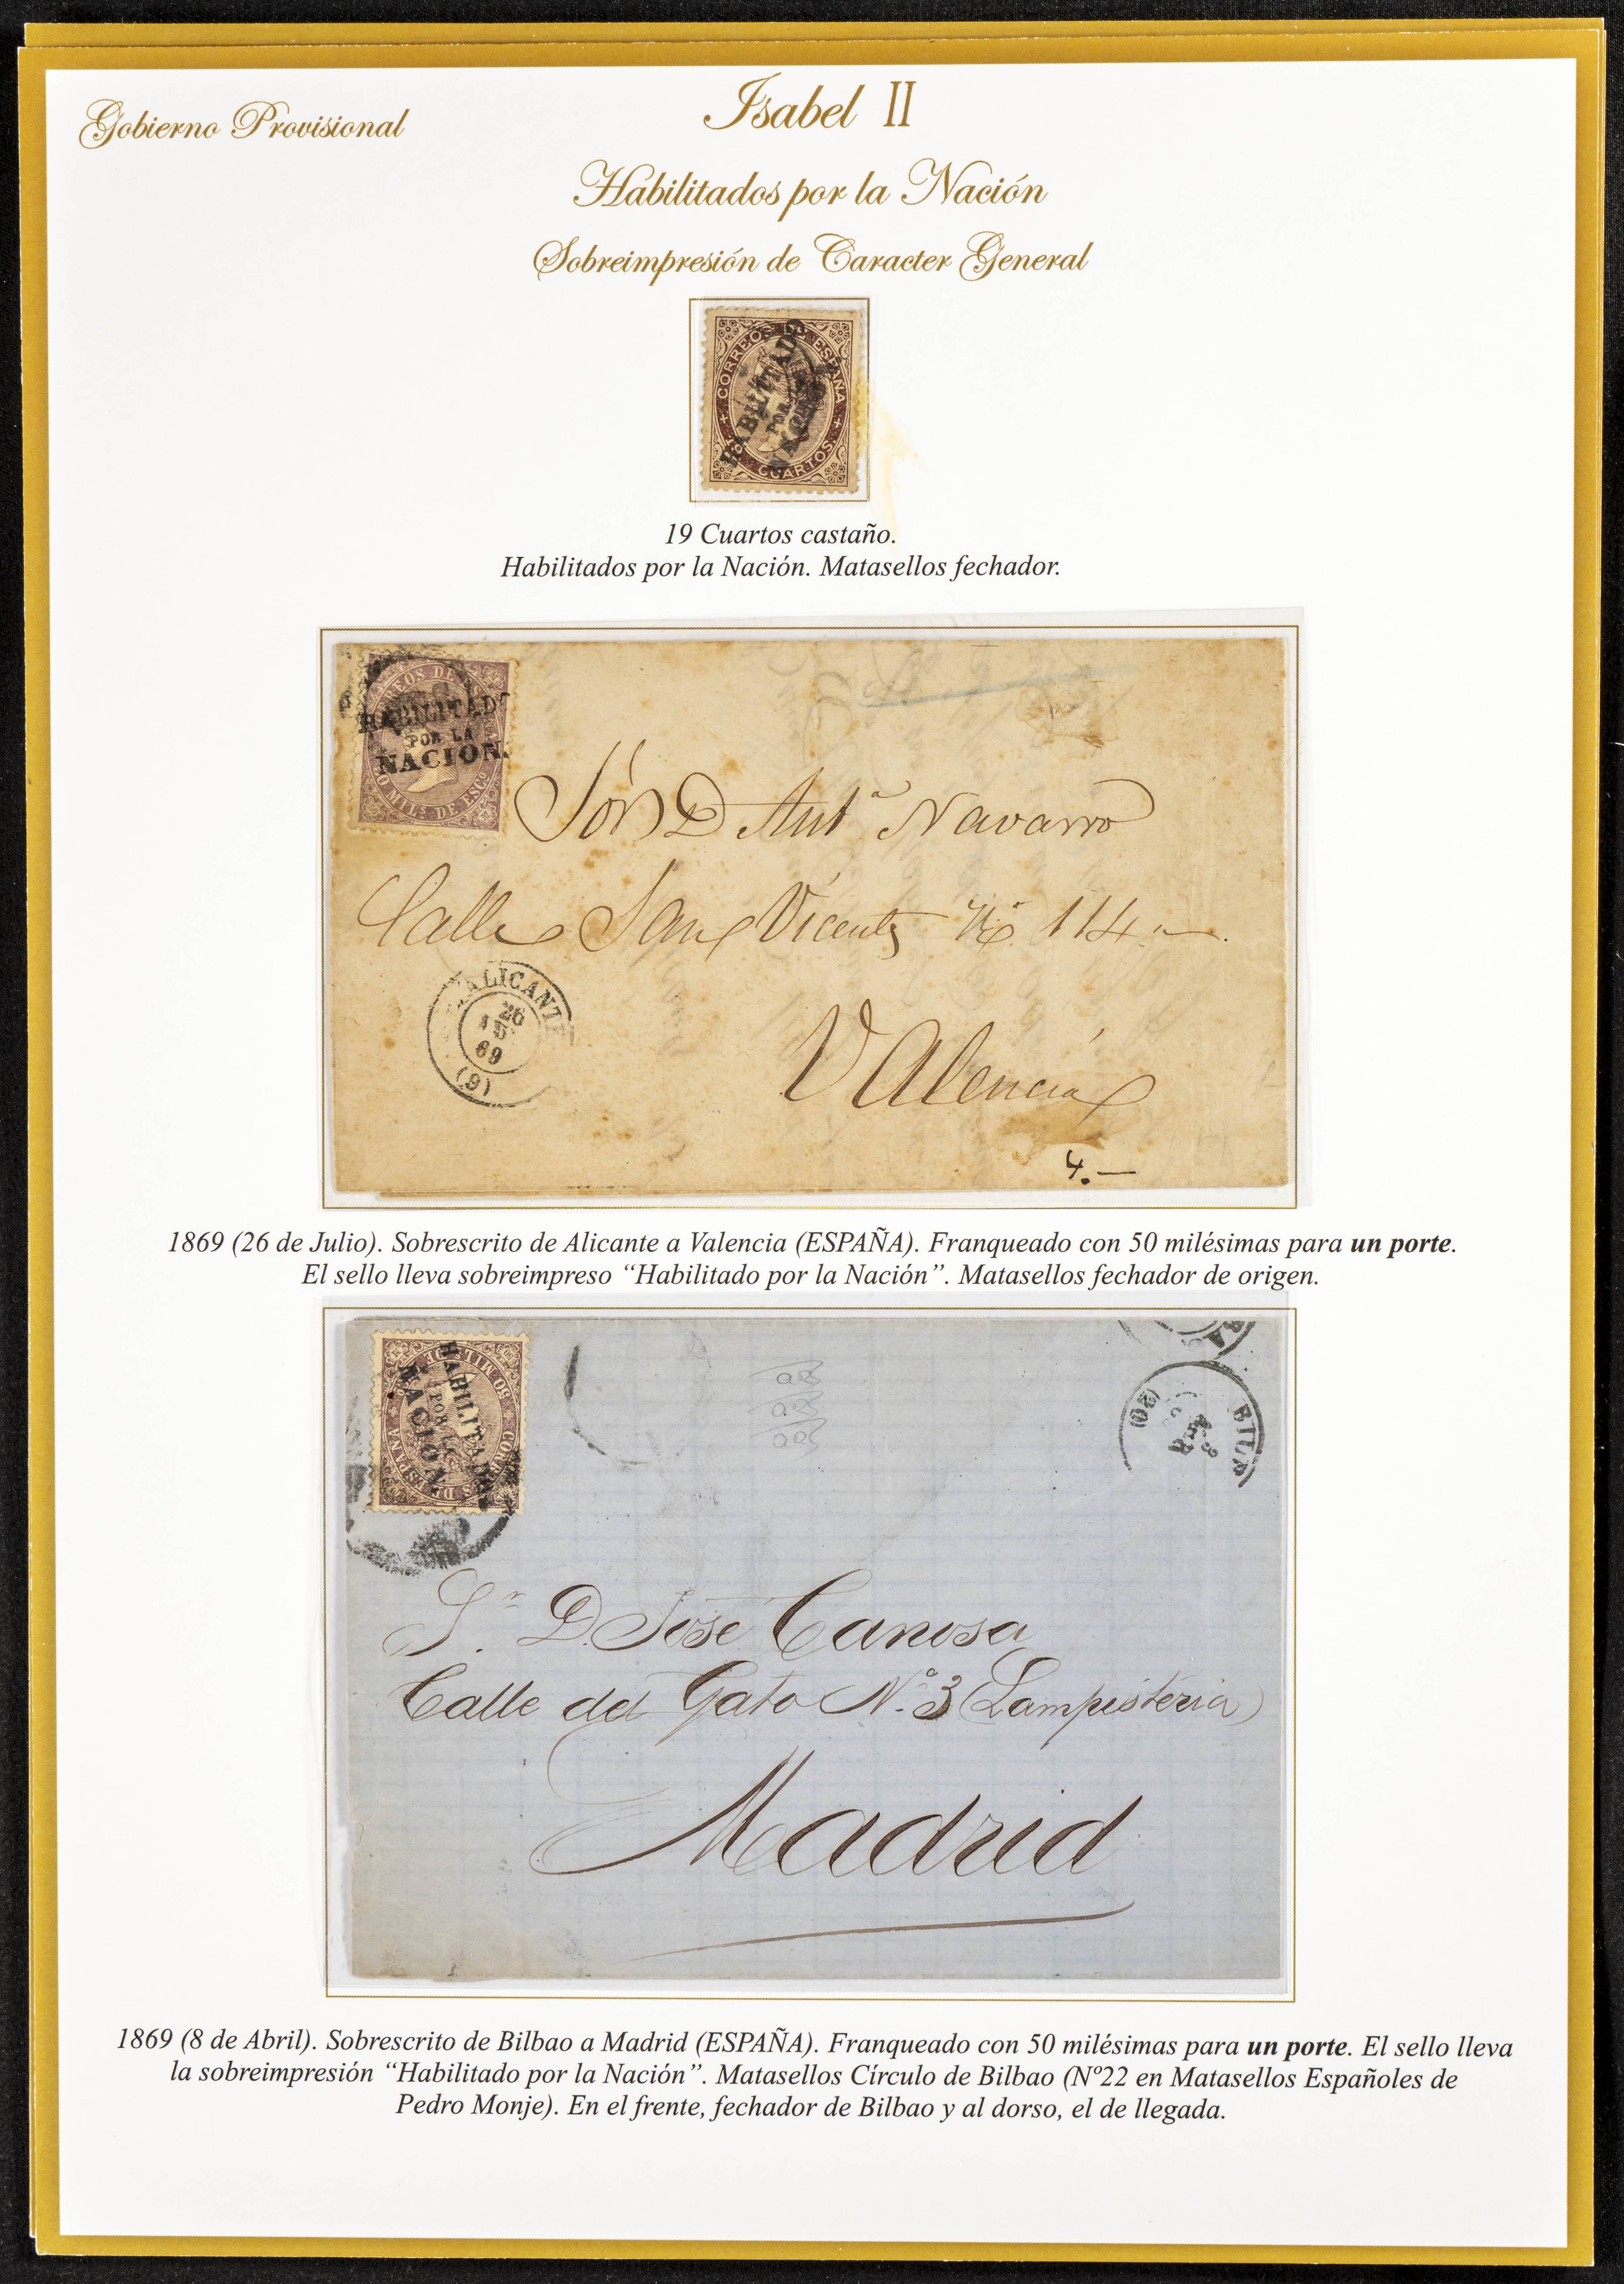 Gobierno Provisional
Isabel II
Habilitados por la Nación
Sobreimpresión de Caracter General
CORREOS DE ESPAÑA
HABILITADO
POR LA
NACION.
19 CUARTOS
19 Cuartos castaño.
Habilitados por la Nación. Matasellos fechador.
HABILITADO
POR LA
NACION.
MIL.s DE ESCO
Sór D Antº Navarro
Calle San Vicente Nº 114.
ALICANTE
26
69
(9)
Valencia
4.—
HABILITADO
POR LA
NACION.
BILB
8
(20)
Sr. D. José Canosa
Calle del Gato Nº 3 (Lampisteria)
Madrid
1869 (26 de Julio). Sobrescrito de Alicante a Valencia (ESPAÑA). Franqueado con 50 milésimas para un porte.
El sello lleva sobreimpreso “Habilitado por la Nación”. Matasellos fechador de origen.
1869 (8 de Abril). Sobrescrito de Bilbao a Madrid (ESPAÑA). Franqueado con 50 milésimas para un porte. El sello lleva
la sobreimpresión “Habilitado por la Nación”. Matasellos Círculo de Bilbao (Nº22 en Matasellos Españoles de
Pedro Monje). En el frente, fechador de Bilbao y al dorso, el de llegada.